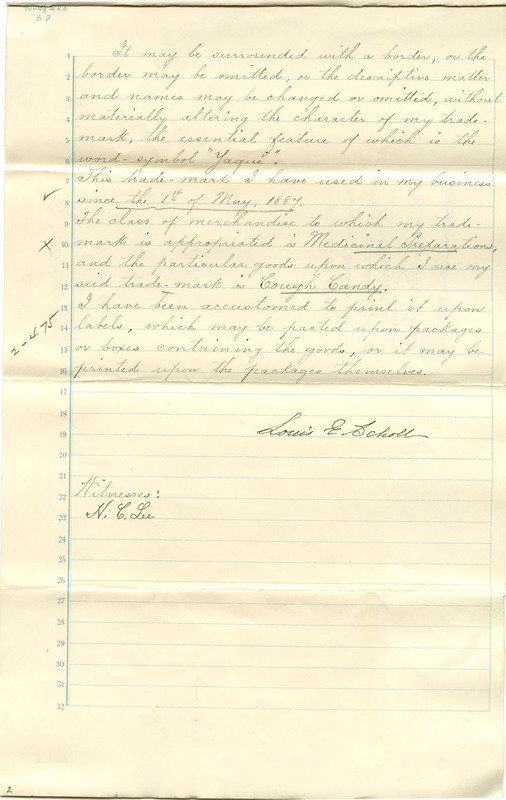 S. F.
1 It may be surrounded with a border, or the
2 border may be omitted, or the descriptive matter
3 and names may be changed or omitted, without
4 materially altering the character of my trade-
5 mark, the essential feature of which is the
6 word-symbol "Yaqui".
7 This trade-mark I have used in my business
8 since the 1st of May, 1887.
9 The class of merchandise to which my trade-
10 mark is appropriated is Medicinal Preparations,
11 and the particular goods upon which I use my
12 said trade-mark is Cough Candy.
13 I have been accustomed to print it upon
14 labels, which may be pasted upon packages
15 or boxes containing the goods, or it may be
16 printed upon the packages themselves.
2-475
17
18
19 Louis E. Scholl
20
21
22 Witnesses:
23 H. C. Lee
24
25
26
27
28
29
30
31
32
2